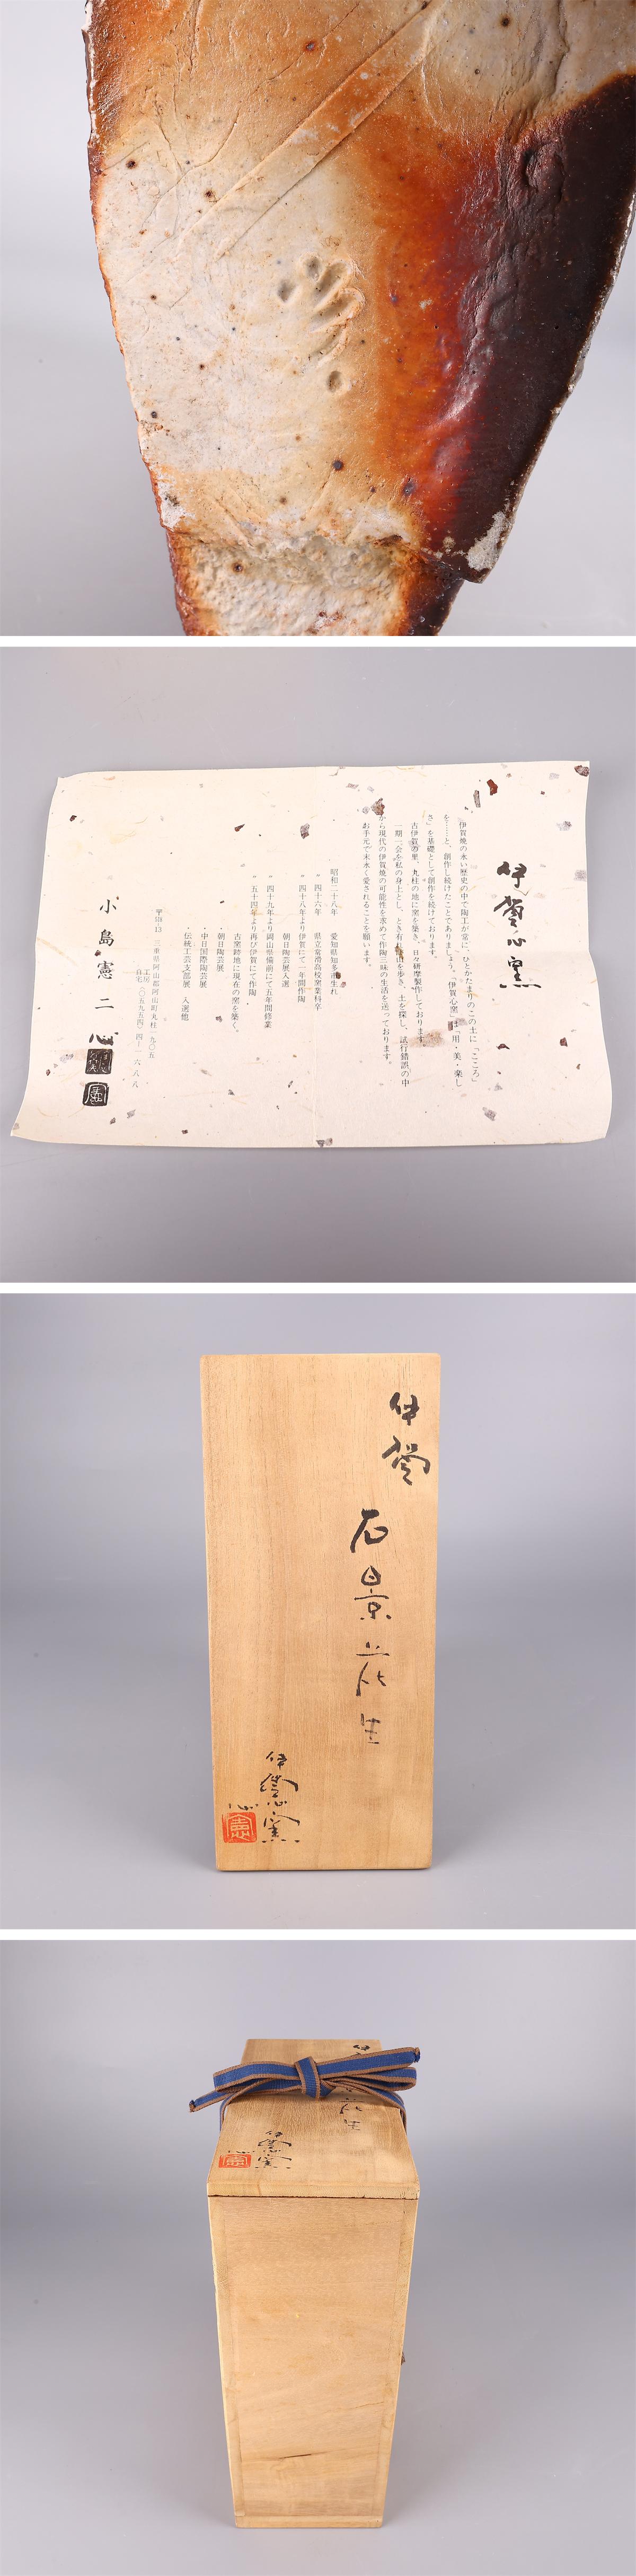 伊賀心窯
伊賀焼の永い歴史の中で陶工が常に、ひとかたまりのこの土に「こころ」
を……と、創作し続けたことでありましょう。「伊賀心窯」は「用・美・楽し
さ」を基礎として創作を続けております。
古伊賀の里、丸柱の地に窯を築き、日々研摩製作しております。
一期一会を私の身上とし、とき有れば山を歩き、土を探し、試行錯誤の中
から現代の伊賀焼の可能性を求めて作陶三昧の生活を送っております。
お手元で末永く愛されることを願います。
昭和二十八年 愛知県知多郡生れ
〃 四十六年 県立常滑高校窯業科卒
〃 四十八年より伊賀にて一年間作陶
朝日陶芸展入選
〃 四十九年より岡山県備前にて五年間修業
〃 五十四年より再び伊賀にて作陶
古窯跡地に現在の窯を築く。
・朝日陶芸展
・中日国際陶芸展
・伝統工芸支部展 入選他
三重県阿山郡阿山町丸柱一九〇五
工房
自宅
小島憲二
心
伊賀
石景花生
伊賀心窯
心
憲
花生
伊賀心窯
心
憲